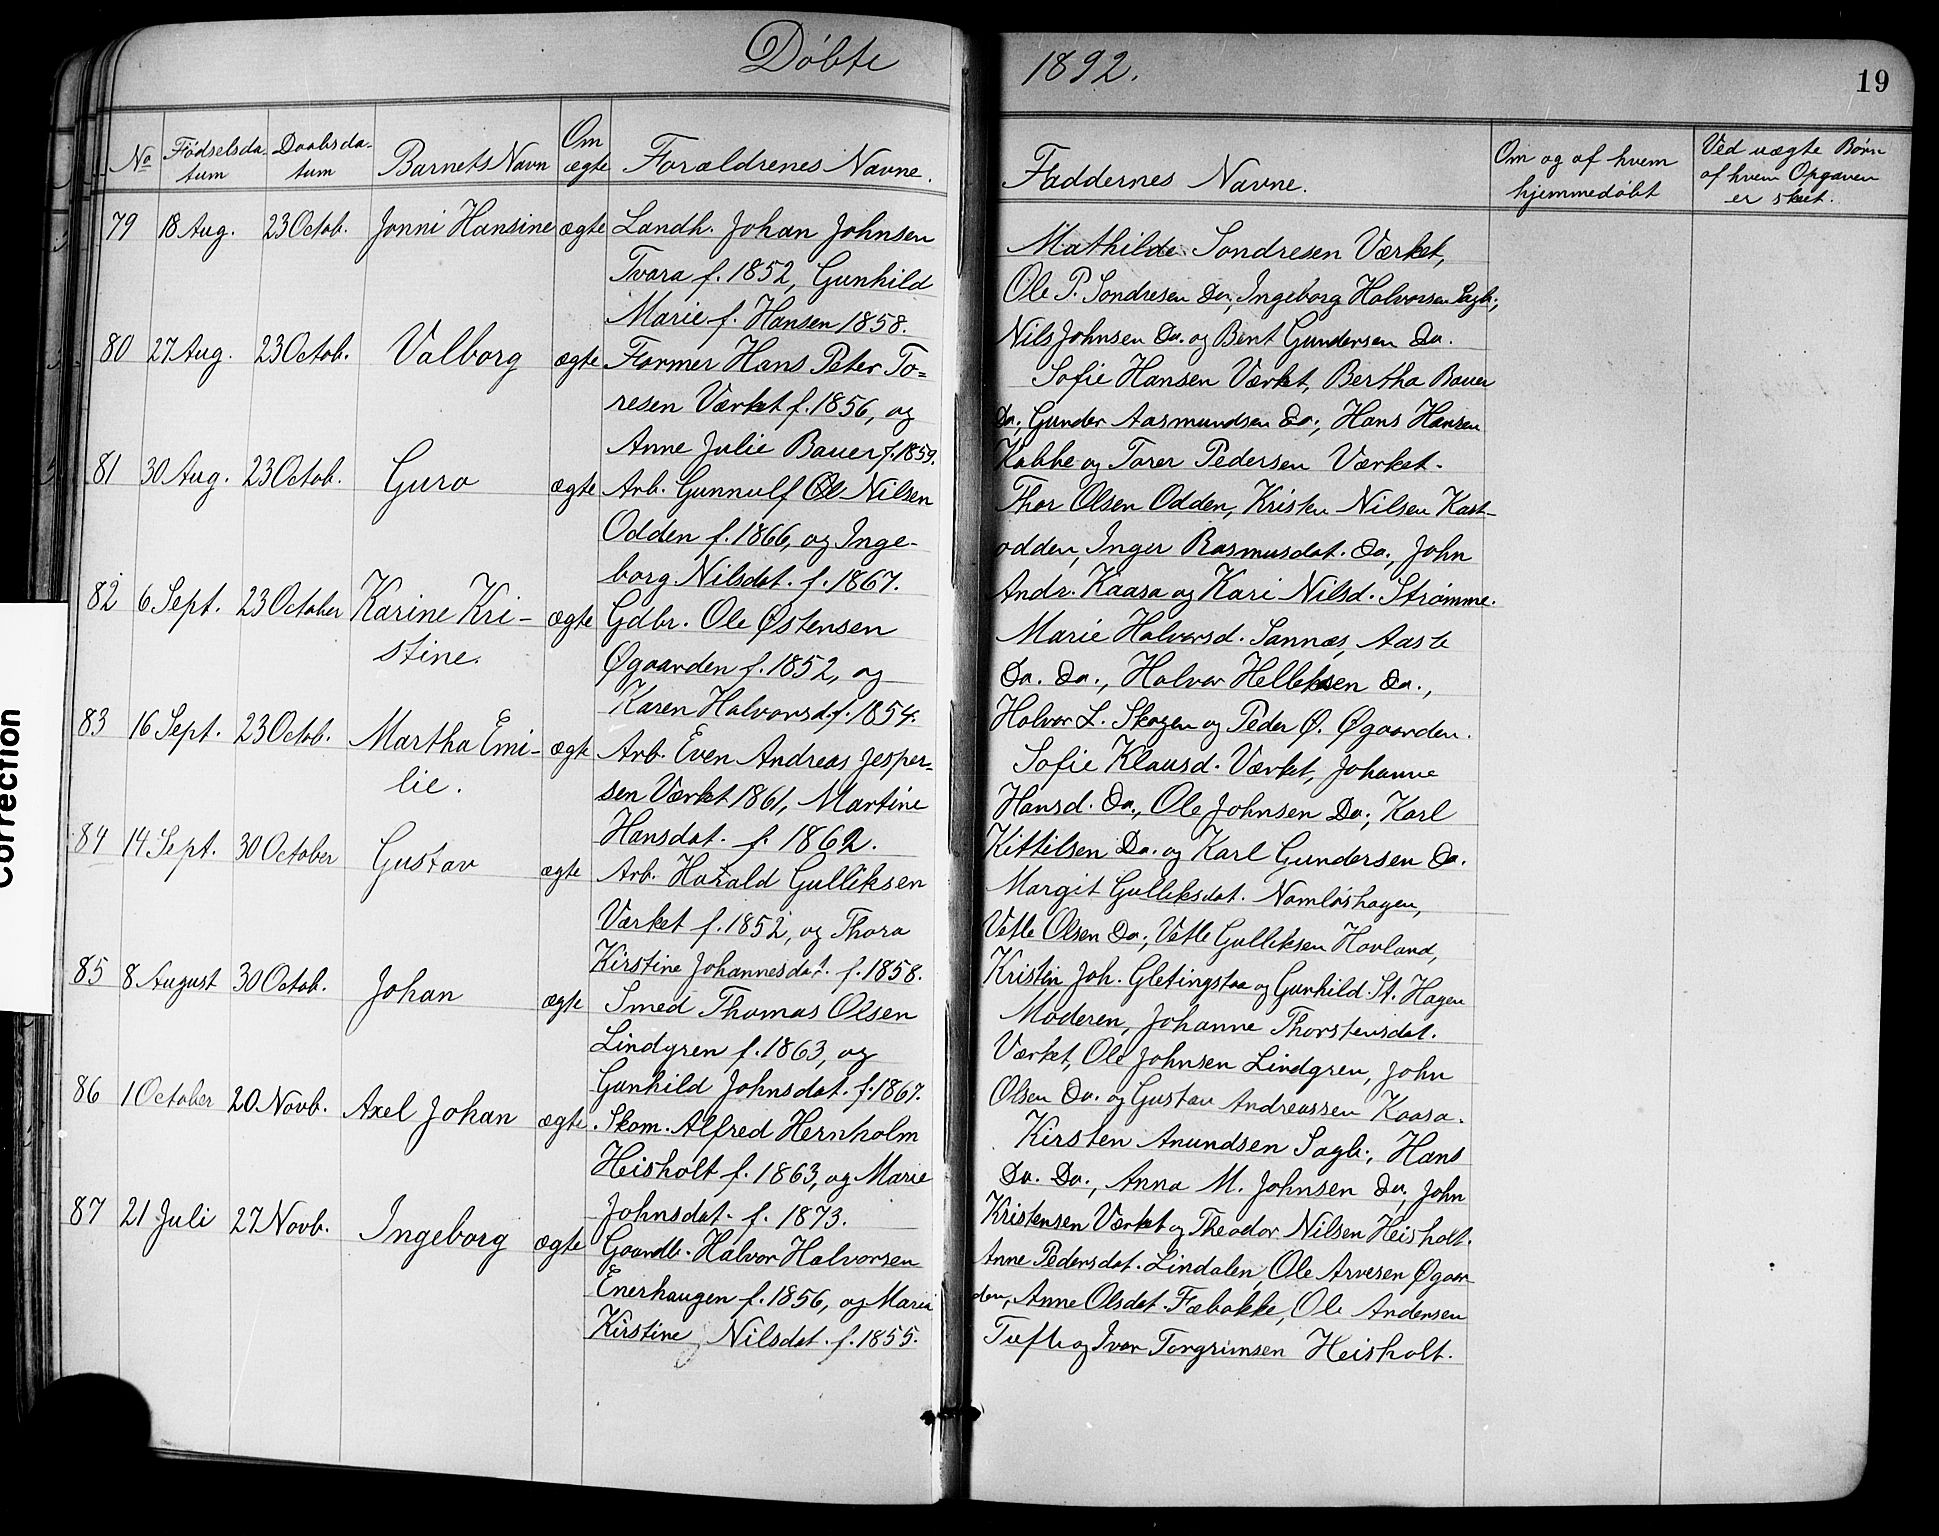 Døbte
1892.
19
No Fødselsda- Daabsda- Barnets Navn Om Forældrenes Navne.
tum tum ægte
Faddernes Navne. Om og af hvem Ved uægte Børn
hjemmedøbt af hvem Opgaven
er skeet.
79 18 Aug. 23 Octob. Jonni Hansine ægte Landh. Johan Johnsen
Tvara f. 1852, Gunhild
Marie f. Hansen 1858.
80 27 Aug. 23 Octob. Valborg ægte Former Hans Peter To=
resen Værket f. 1856, og
Anne Julie Bauer f. 1859.
81 30 Aug. 23 Octob. Guro ægte Arb. Gunnulf Nilsen
Odden f. 1866, og Inge-
borg Nilsdat. f. 1867.
82 6 Sept. 23 October Karine Kri- ægte Gdbr. Ole Østensen
stine. Øgaarden f. 1852, og
Karen Halvorsd. f. 1854.
83 16 Sept. 23 Octob. Martha Emi- ægte Arb. Even Andreas Jesper=
lie. sen Værket 1861, Martine
Hansdat. f. 1862.
84 14 Sept. 30 October Gustav ægte Arb. Harald Gulliksen
Værket f. 1852, og Thora
Kirstine Johannesdat. f. 1858.
85 8 August 30 Octob. Johan ægte Smed Thomas Olsen
Lindgren f. 1863, og
Gunhild Johnsdat. f. 1867.
86 1 October 20 Novb. Axel Johan ægte. Skom. Alfred Hernholm
Heisholt f. 1863, og Marie
Johnsdat. f. 1873.
87 21 Juli 27 Novb. Ingeborg ægte Gaardb. Halvor Halvorsen
Enerhaugen f. 1856, og Maria
Kirstine Nilsdat. f. 1855.
Mathilde Sondresen Værket,
Ole P. Sondresen Do., Ingeborg Halvorsen Sagb.,
Nils Johnsen Do. og Bent Gundersen Do.
Sofie Hansen Værket, Bertha Bauer
Do., Gunder Aasmundsen Do., Hans Hansen
Kabbe og Torer Pedersen Værket.
Thor Olsen Odden, Kristen Nilsen Kast-
odden, Inger Rasmusdat. Do., John
Andr. Kaasa og Kari Nilsd. Strømme.
Marie Halvorsd. Sannæs, Aaste
Do. Do., Halvor Helleksen Do.,
Halvor L. Skogen og Peder Ø. Øgaarden.
Sofie Klausd. Værket, Johanne
Hansd. Do., Ole Johnsen Do., Karl
Kittilsen Do. og Karl Gundersen Do.
Margit Gulliksdat. Namløshagen,
Vetle Olsen Do., Vetle Gulliksen Hovland,
Kristin Joh. Gletingstaa og Gunhild St. Hagen
Moderen, Johanne Thorstensdat.
Værket, Ole Johnsen Lindgren, John
Olsen Do. og Gustav Andreassen Kaasa.
Kirsten Anundsen Sagb., Hans
Do. Do., Anna M. Johnsen Do., John
Kristensen Værket og Theodor Nilsen Heisholt.
Anne Pedersdat. Lindalen, Ole Arvesen Øgaar-
den, Anne Olsdat. Fæbakke, Ole Andersen
Tufte og Ivar Torgrimsen Heisholt.
Correction